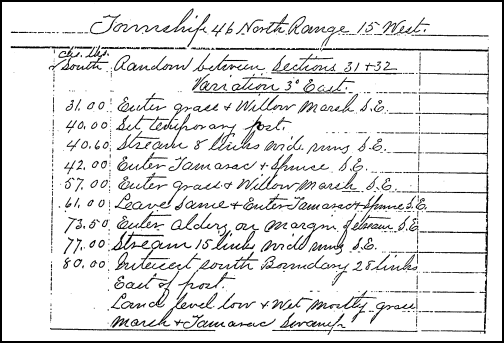 Township 46 North Range 15 West.
Chs. Lks.
South Random between Sections 31 + 32
Variation 3° East.
31.00 Enter grass + Willow Marsh S.E.
40.00 Set temporary post.
40.60 Stream 8 links wide runs S.E.
42.00 Enter Tamarac + Spruce S.E.
57.00 Enter grass + Willow Marsh S.E.
61.00 Leave Same + Enter Tamarac + Spruce S.E.
73.50 Enter alders on margin of stream S.E.
77.00 Stream 15 links wide runs S.E.
80.00 Intersect south Boundary 25 links
East of post.
Land level low + Wet mostly grass
Marsh + Tamarac Swamp